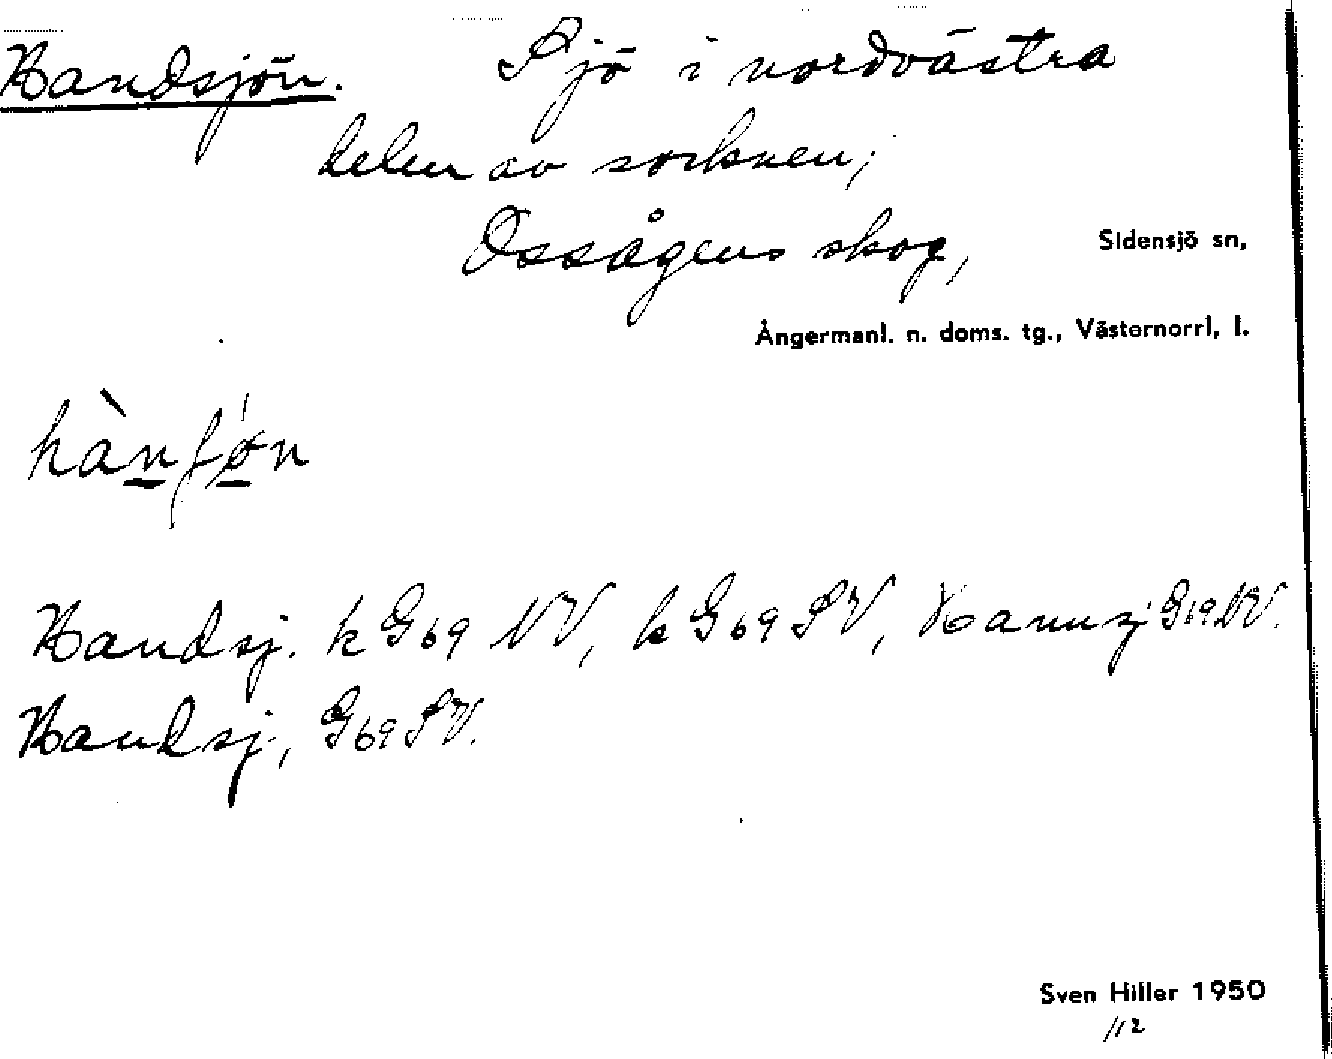 Handsjön. Sjö i nordvästra
delen av socknen;
Ossågens skog,
Sidensjö sn,
Ångermanl. n. doms. tg., Västernorrl. l.
hànʃǿn
Handsj. k G69 NV, k G69 SV, Hannsj G19 NV.
Handsj, G69 SV.
Sven Hiller 1950
/12